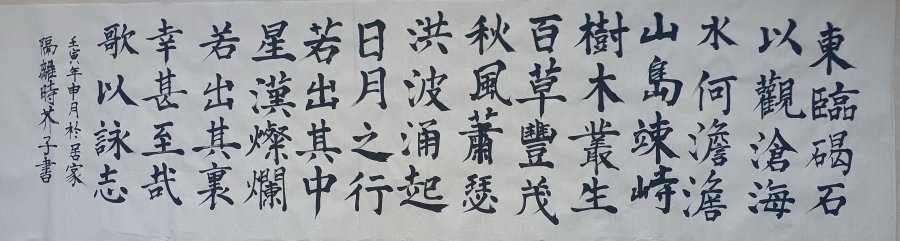 東臨碣石
以觀滄海
水何澹澹
山島竦峙
樹木叢生
百草豐茂
秋風蕭瑟
洪波涌起
日月之行
若出其中
星漢燦爛
若出其裏
幸甚至哉
歌以詠志
壬寅年申月於居家
隔離時芥子書